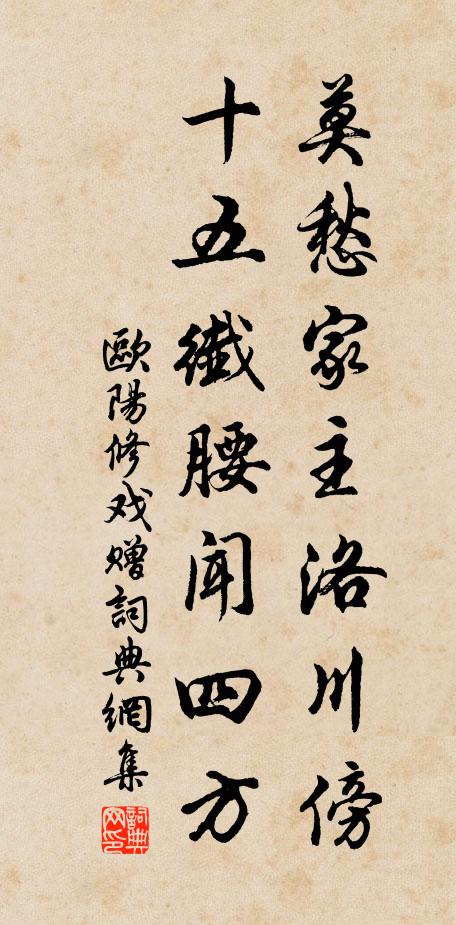 莫愁家主洛川傍
十五纖腰聞四方
歐陽修戏赠詞典網集
詞典网印